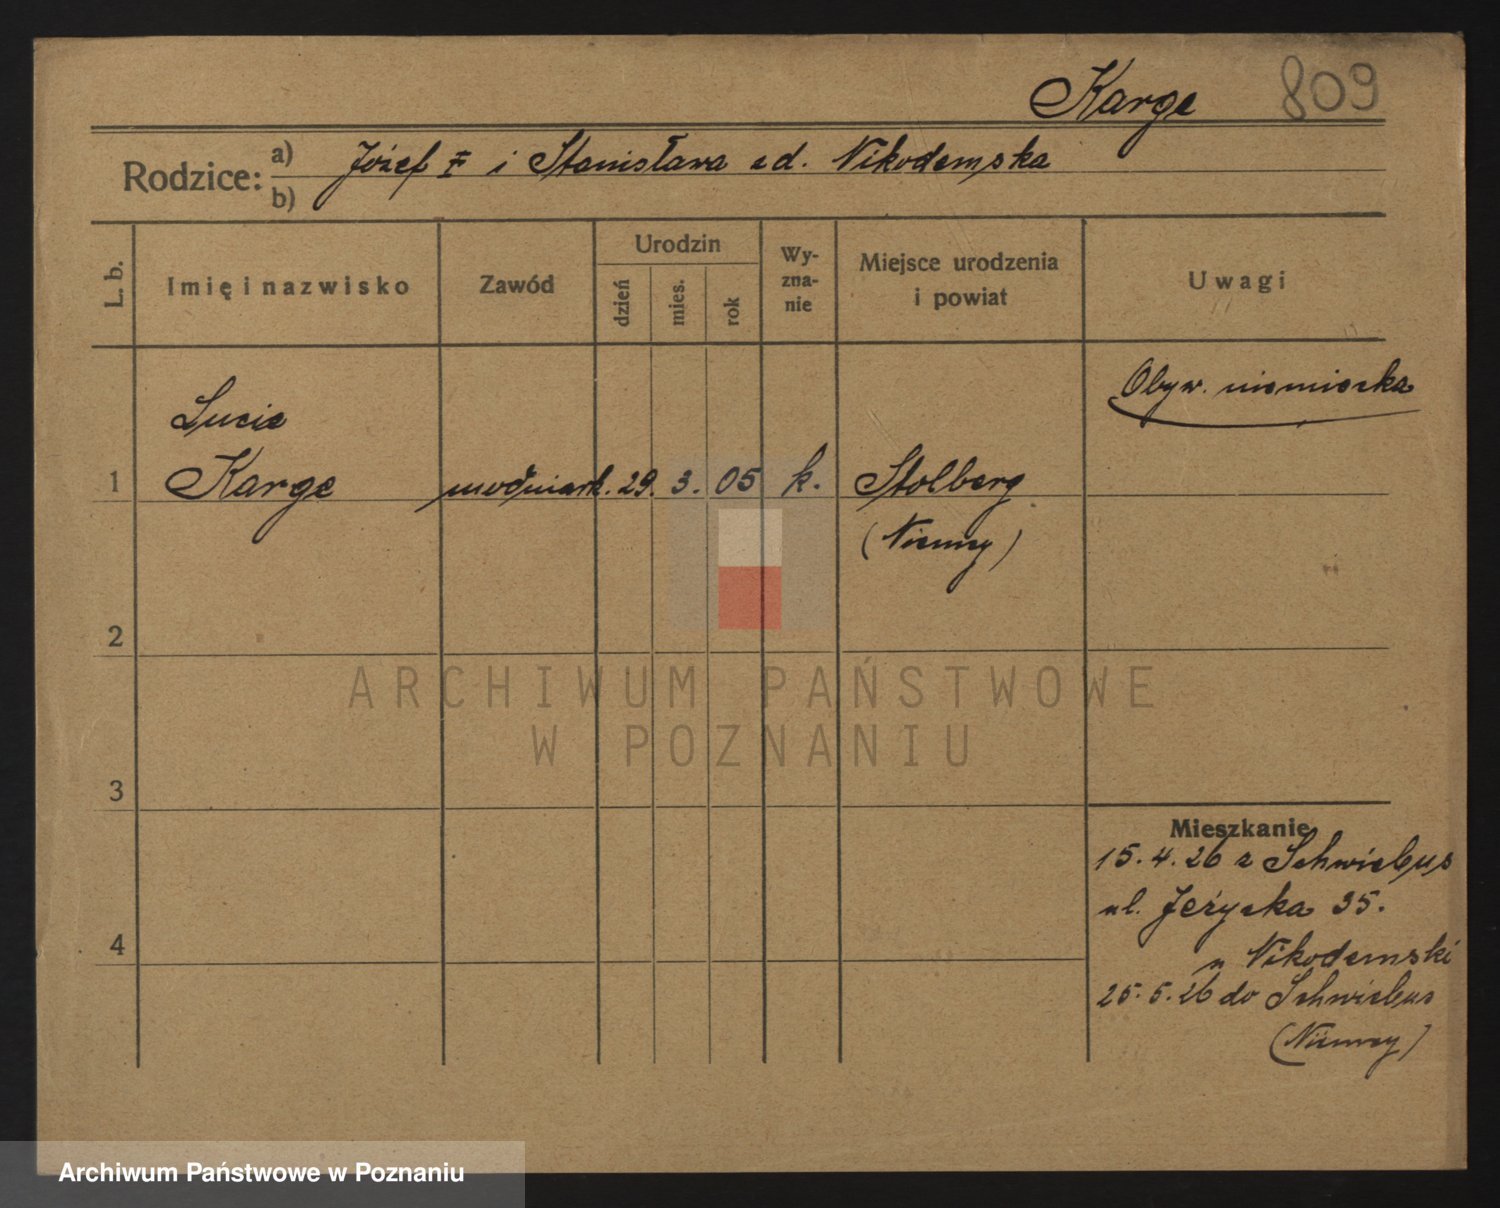 Karge 809
Rodzice: a) Józef i Stanisława zd. Nikodemska
b)
L. b.
Imię i nazwisko
Zawód
Urodzin
dzień
mies.
rok
Wy-
zna-
nie
Miejsce urodzenia
i powiat
Uwagi
Obyw. niemiecka
Lucie
1 Karge modniark. 29. 3. 05 k. Stolberg
(Niemcy)
2
ARCHIWUM PAŃSTWOWE
W POZNANIU
3
Mieszkanie
15.4.26 z Schwiebus
ul. Jeżycka 35.
4
u Nikodemski
25.5.26 do Schwiebus
(Niemcy)
Archiwum Państwowe w Poznaniu